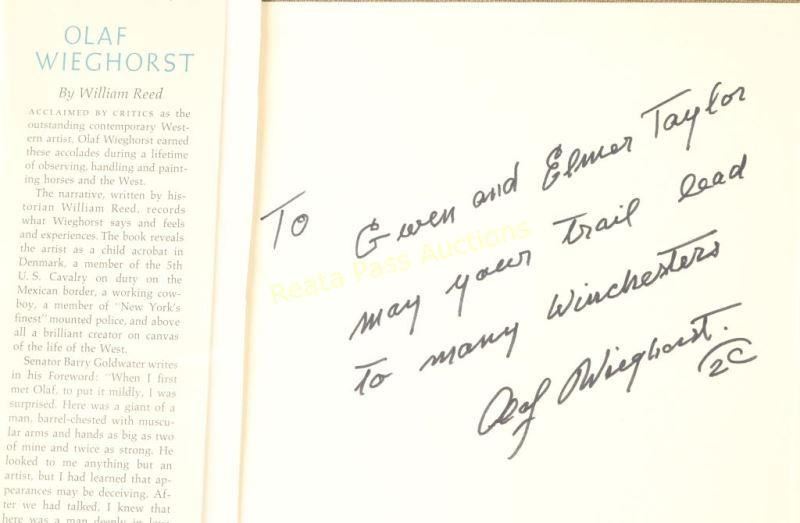 OLAF
WIEGHORST
By William Reed
ACCLAIMED BY CRITICS as the
outstanding contemporary West-
ern artist, Olaf Wieghorst earned
these accolades during a lifetime
of observing, handling and paint-
ing horses and the West.
The narrative, written by his-
torian William Reed, records
what Wieghorst says and feels
and experiences. The book reveals
the artist as a child acrobat in
Denmark, a member of the 5th
U. S. Cavalry on duty on the
Mexican border, a working cow-
boy, a member of "New York's
finest" mounted police, and above
all a brilliant creator on canvas
of the life of the West.
Senator Barry Goldwater writes
in his Foreword: "When I first
met Olaf, to put it mildly, I was
surprised. Here was a giant of a
man, barrel-chested with muscu-
lar arms and hands as big as two
of mine and twice as strong. He
looked to me anything but an
artist, but I had learned that ap-
pearances may be deceiving. Af-
ter we had talked, I knew that
here was a man deeply in love
To Gwen and Elmer Taylor
may your trail lead
To many Winchesters
Olaf Wieghorst.
2C
Reata Pass Auctions